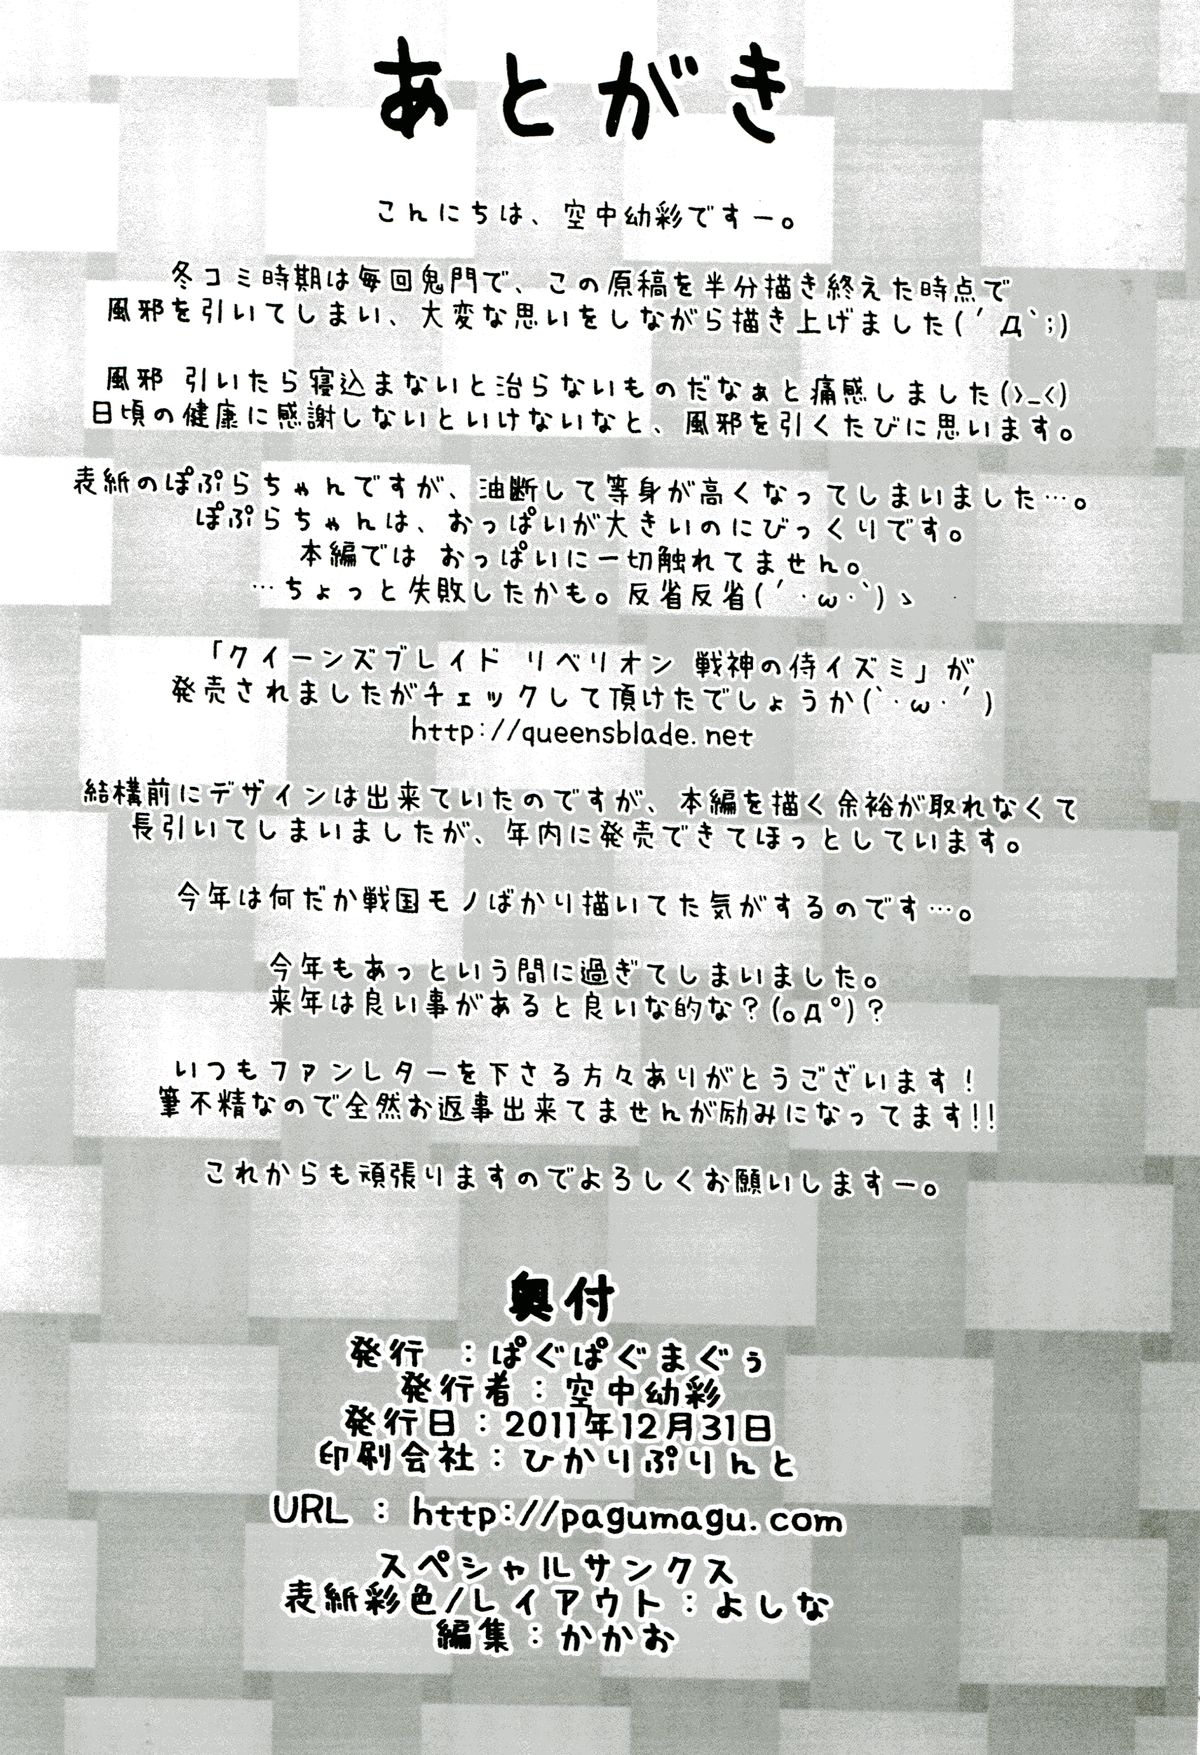 あとがき
こんにちは、空中幼彩ですー。
冬コミ時期は毎回鬼門で、この原稿を半分描き終えた時点で
風邪を引いてしまい、大変な思いをしながら描き上げました(´Д`;)
風邪 引いたら寝込まないと治らないものだなぁと痛感しました(>_<)
日頃の健康に感謝しないといけないなと、風邪を引くたびに思います。
表紙のぽぷらちゃんですが、油断して等身が高くなってしまいました…。
ぽぷらちゃんは、おっぱいが大きいのにびっくりです。
本編では おっぱいに一切触れてません。
…ちょっと失敗したかも。反省反省(´・ω・`)ゝ
「クイーンズブレイド リベリオン 戦神の侍イズミ」が
発売されましたがチェックして頂けたでしょうか(`・ω・´)
http://queensblade.net
結構前にデザインは出来ていたのですが、本編を描く余裕が取れなくて
長引いてしまいましたが、年内に発売できてほっとしています。
今年は何だか戦国モノばかり描いてた気がするのです…。
今年もあっという間に過ぎてしまいました。
来年は良い事があると良いな的な?(｡д゚)?
いつもファンレターを下さる方々ありがとうございます!
筆不精なので全然お返事出来てませんが励みになってます!!
これからも頑張りますのでよろしくお願いしますー。
奥付
発行 :ぱぐぱぐまぐぅ
発行者:空中幼彩
発行日:2011年12月31日
印刷会社:ひかりぷりんと
URL : http://pagumagu.com
スペシャルサンクス
表紙彩色/レイアウト:よしな
編集:かかお